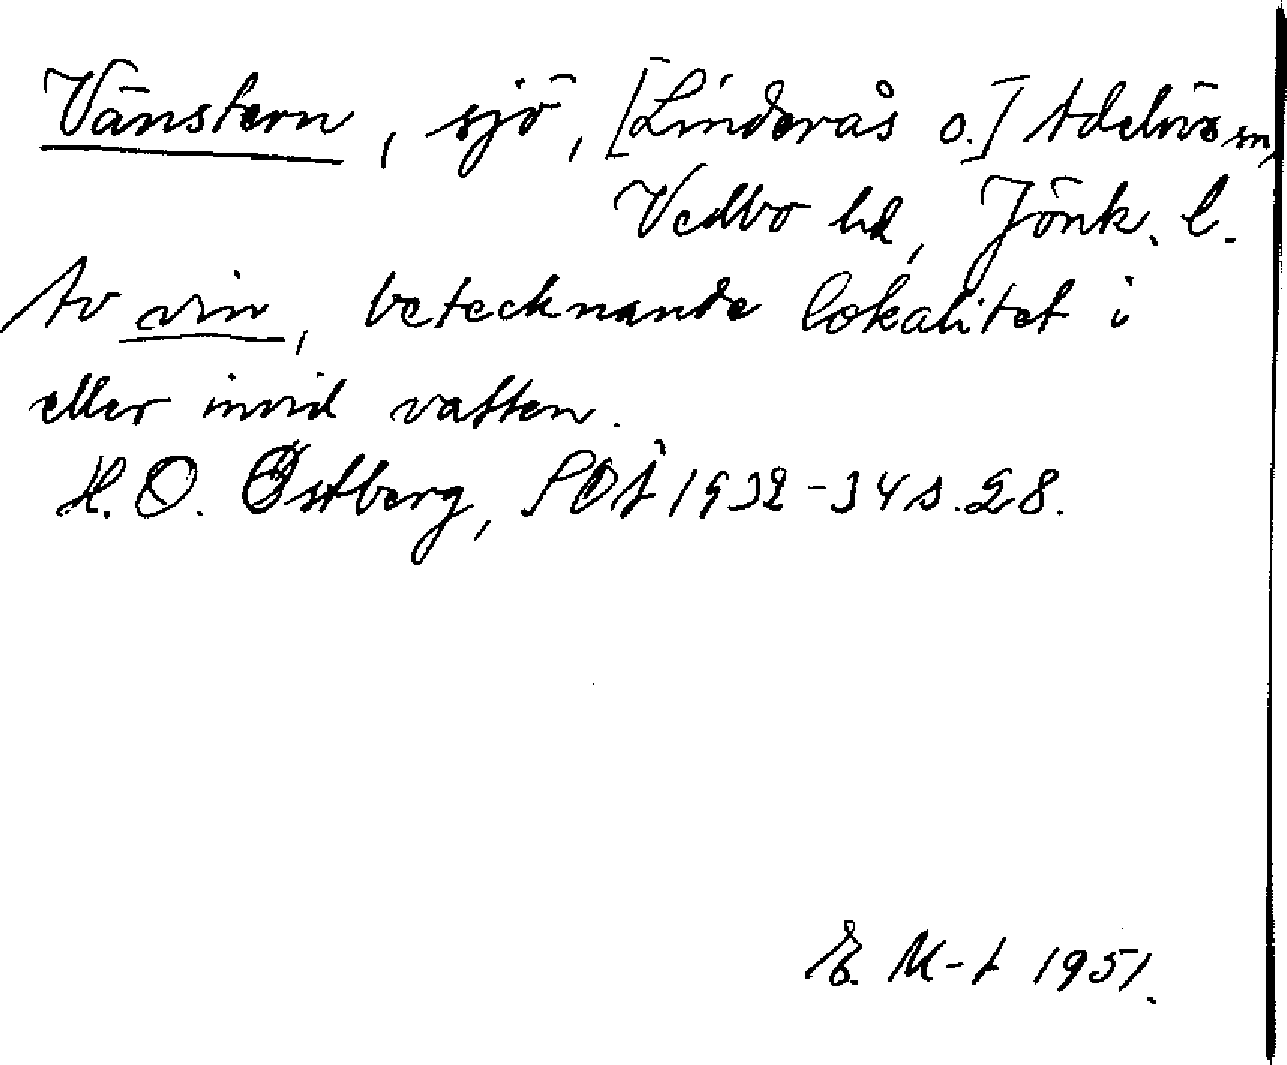 Vänstern, sjö, [Linderås o.] Adelövs sn,
Vedbo hd, Jönk. l.
Av vin, betecknande lokalitet i
eller invid vatten.
H. O. Östberg, SOÅ 1932-34 s. 28.
E. M-t 1951.